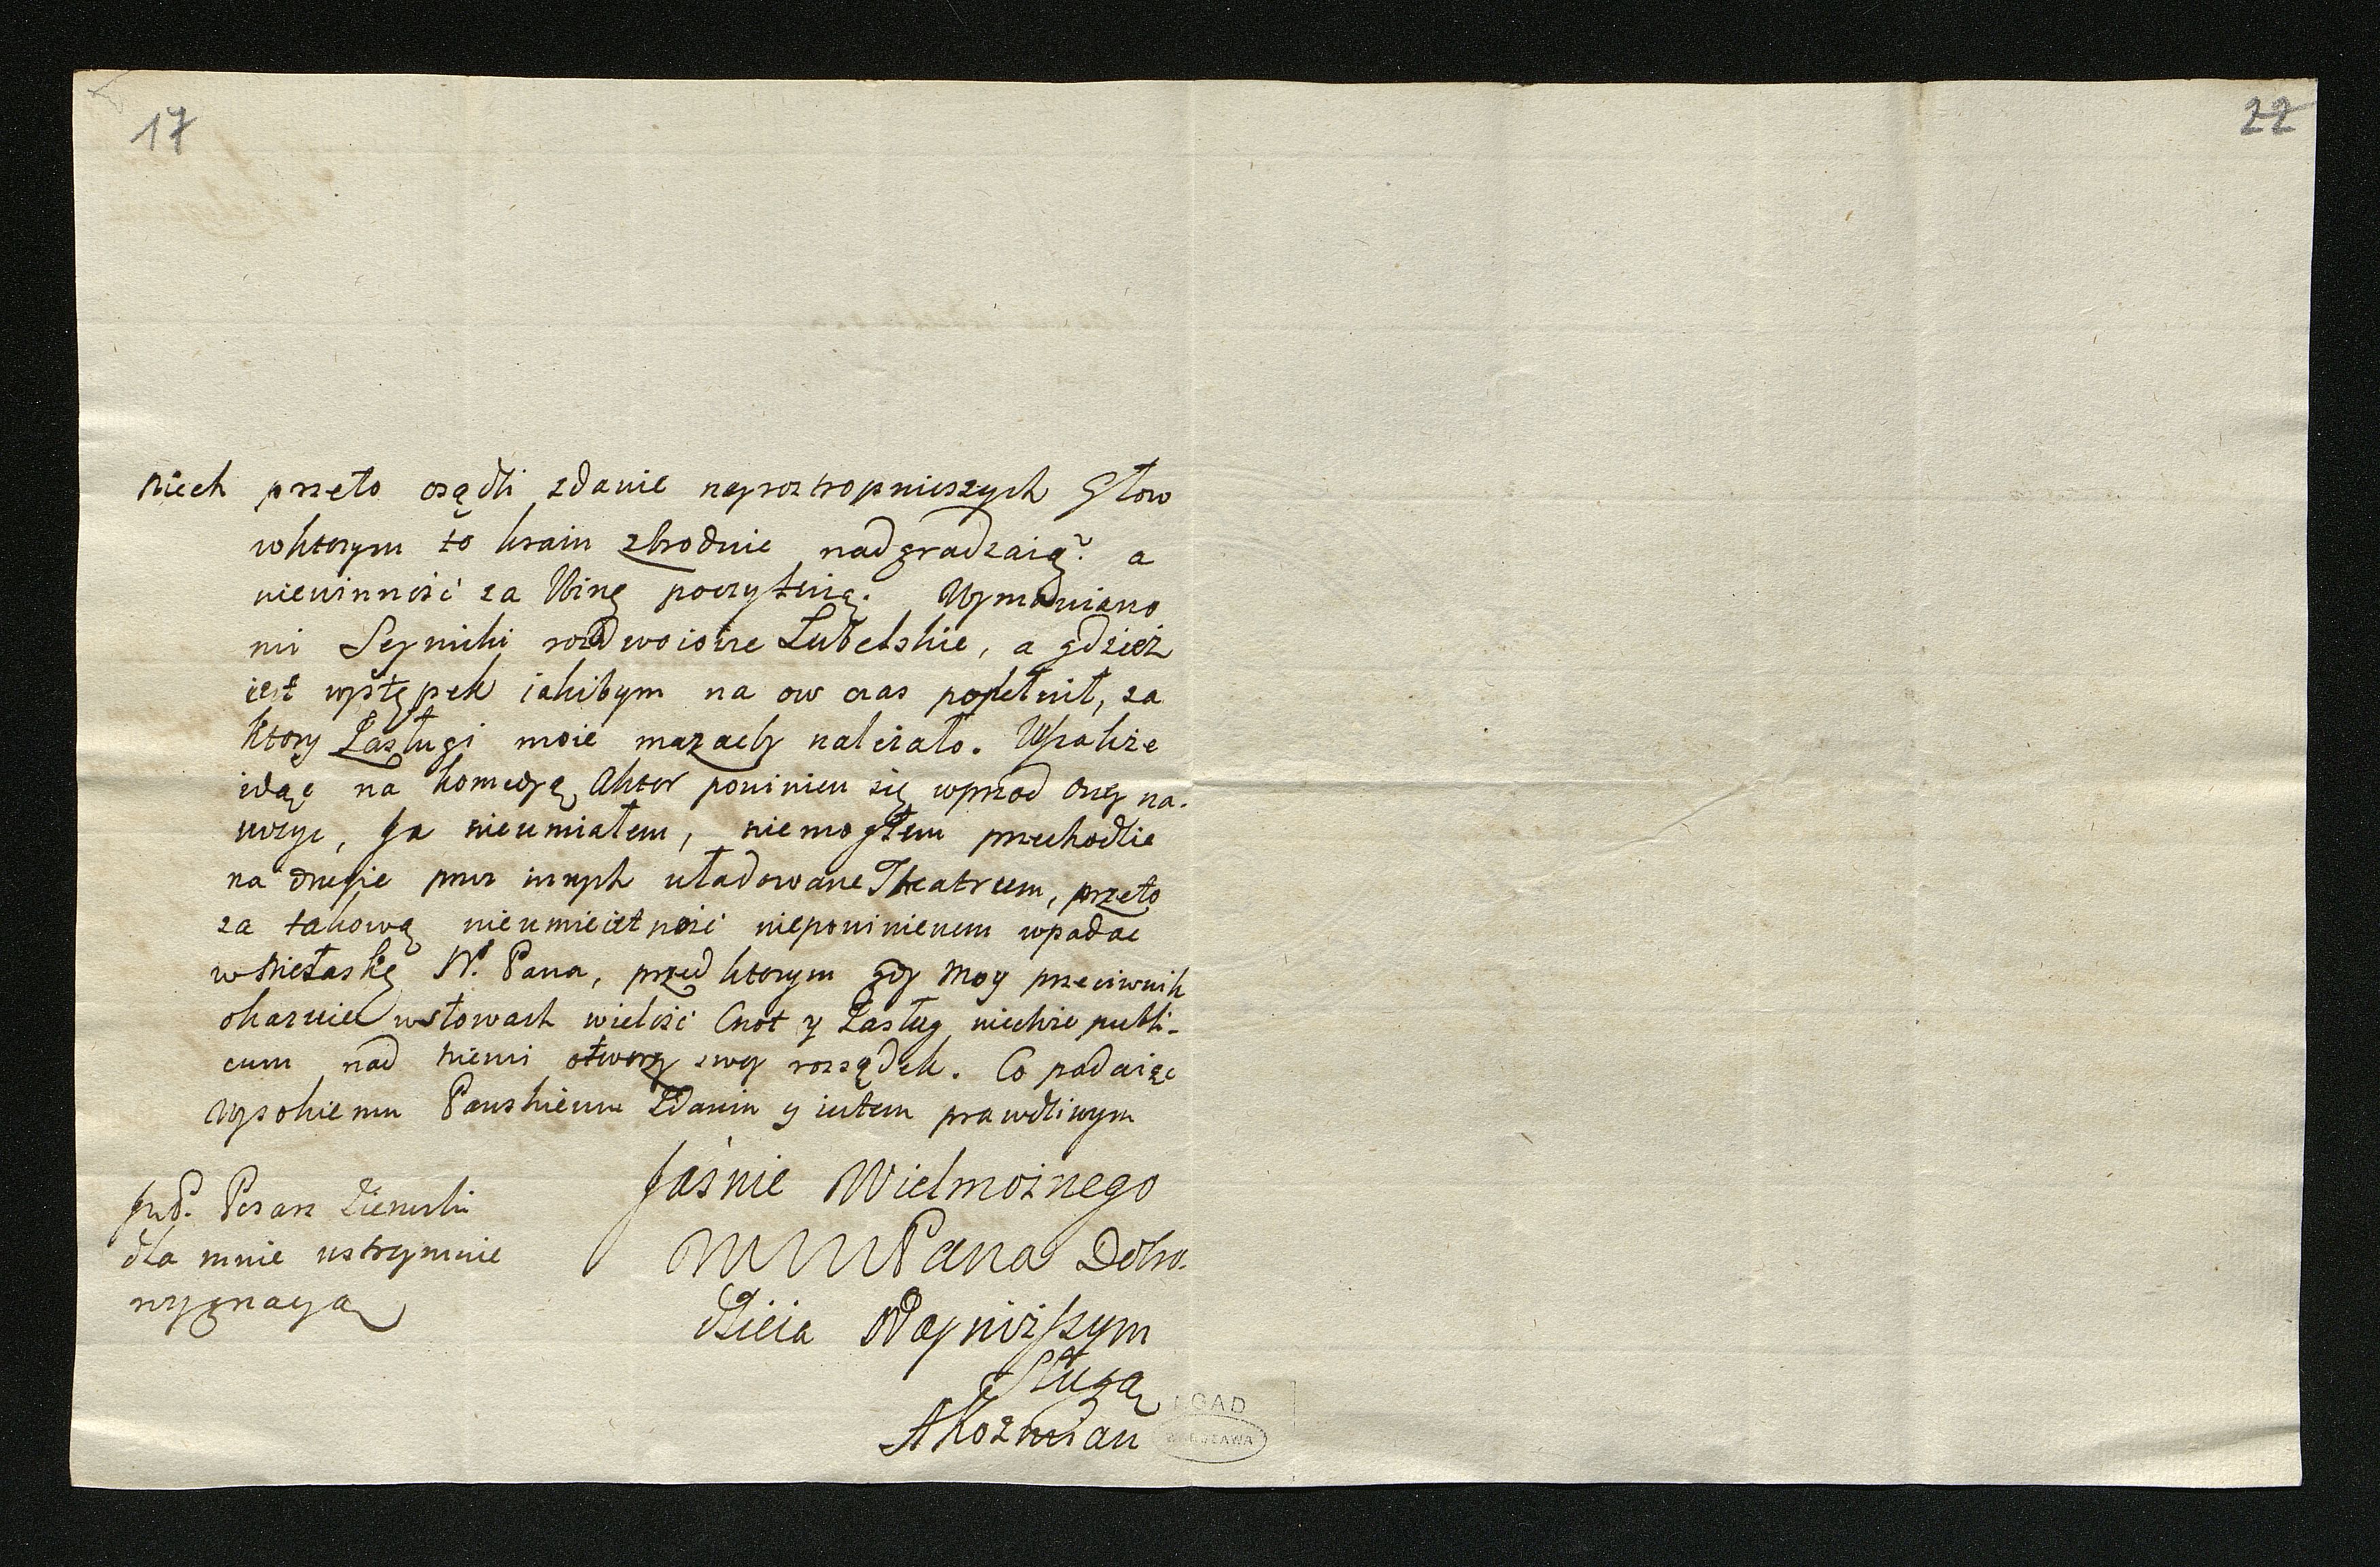 17
22
Niech przeto osądzi zdanie nayroztropnieszych Głow
wktorym to kraiu zbrodnie nadgradzaią? a
niewinność za Winę poczytuią. Wymawiano
mi Seymiki rozdwoione Lubelskie, a gdzież
iest występek iakibym na ow czas popełnił, za
ktory Zasługi moie mazacby należało. Wszakże
idąc na komedyą Aktor powinien się wprzod oney na-
uczyc, Ja nieumiałem, niemogłem przechodzic
na drugie przez innych uładowane Theatrum, przeto
za takową nieumieietność niepowinienem wpadac
w Niełaskę N. Pana, przed ktorym gdy moy przeciwnik
okazuie wsłowach wielość Cnot y Zasług niechże publi-
cum nad niemi otworzy swoy rozsądek. Co podaiąc
wysokiemu Panskiemu Zdaniu y iestem prawdziwym
Jaśnie Wielmożnego
WMMPana Dobro-
dzieia Nayniższym
Sługą
AKozmian
JmP. Pisarz Ziemski
dla mnie ustrzymnie
AGAD
WARSZAWA